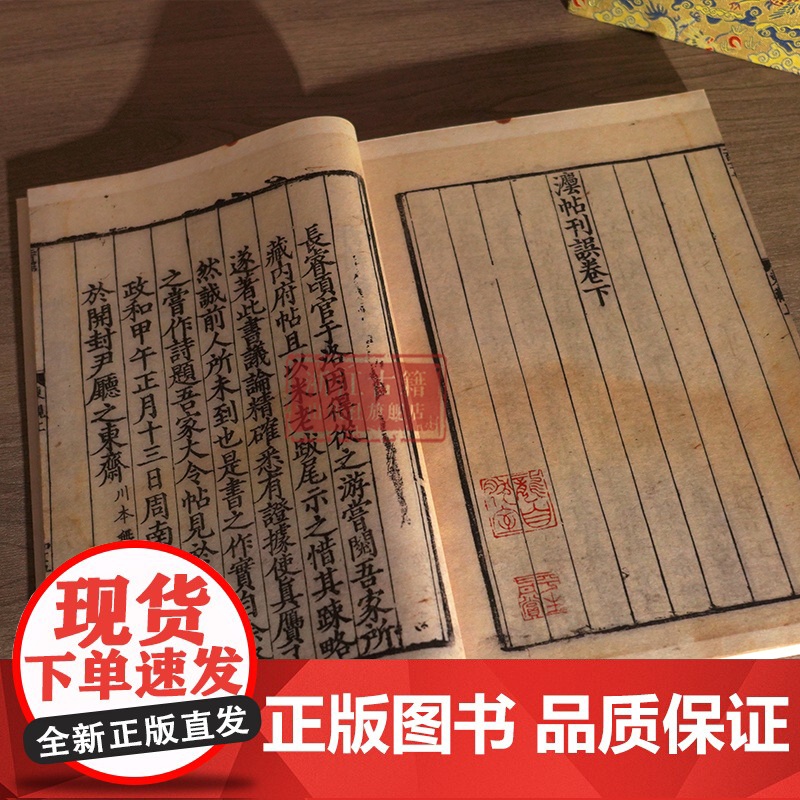 灋帖刊誤卷下
長睿頃官于洛因得從之游嘗閱吾家所
藏內府帖且以米老跋尾示之惜其疎略
遂著此書議論精確悉有證據使真贗
然誠前人所未到也是書之作實自
之嘗作詩題吾家大令帖見於
政和甲午正月十三日周南
於開封尹廳之東齋川本
古籍
旗舰店
现货
下单速发
全新正版直发
正版图书 品质保证